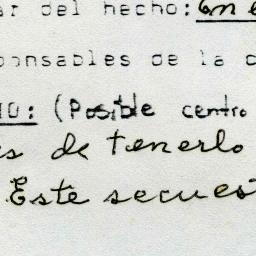 ar del hecho: En e
onsables de la c
IO: (Posible centro
es de tenerlo
Este secues